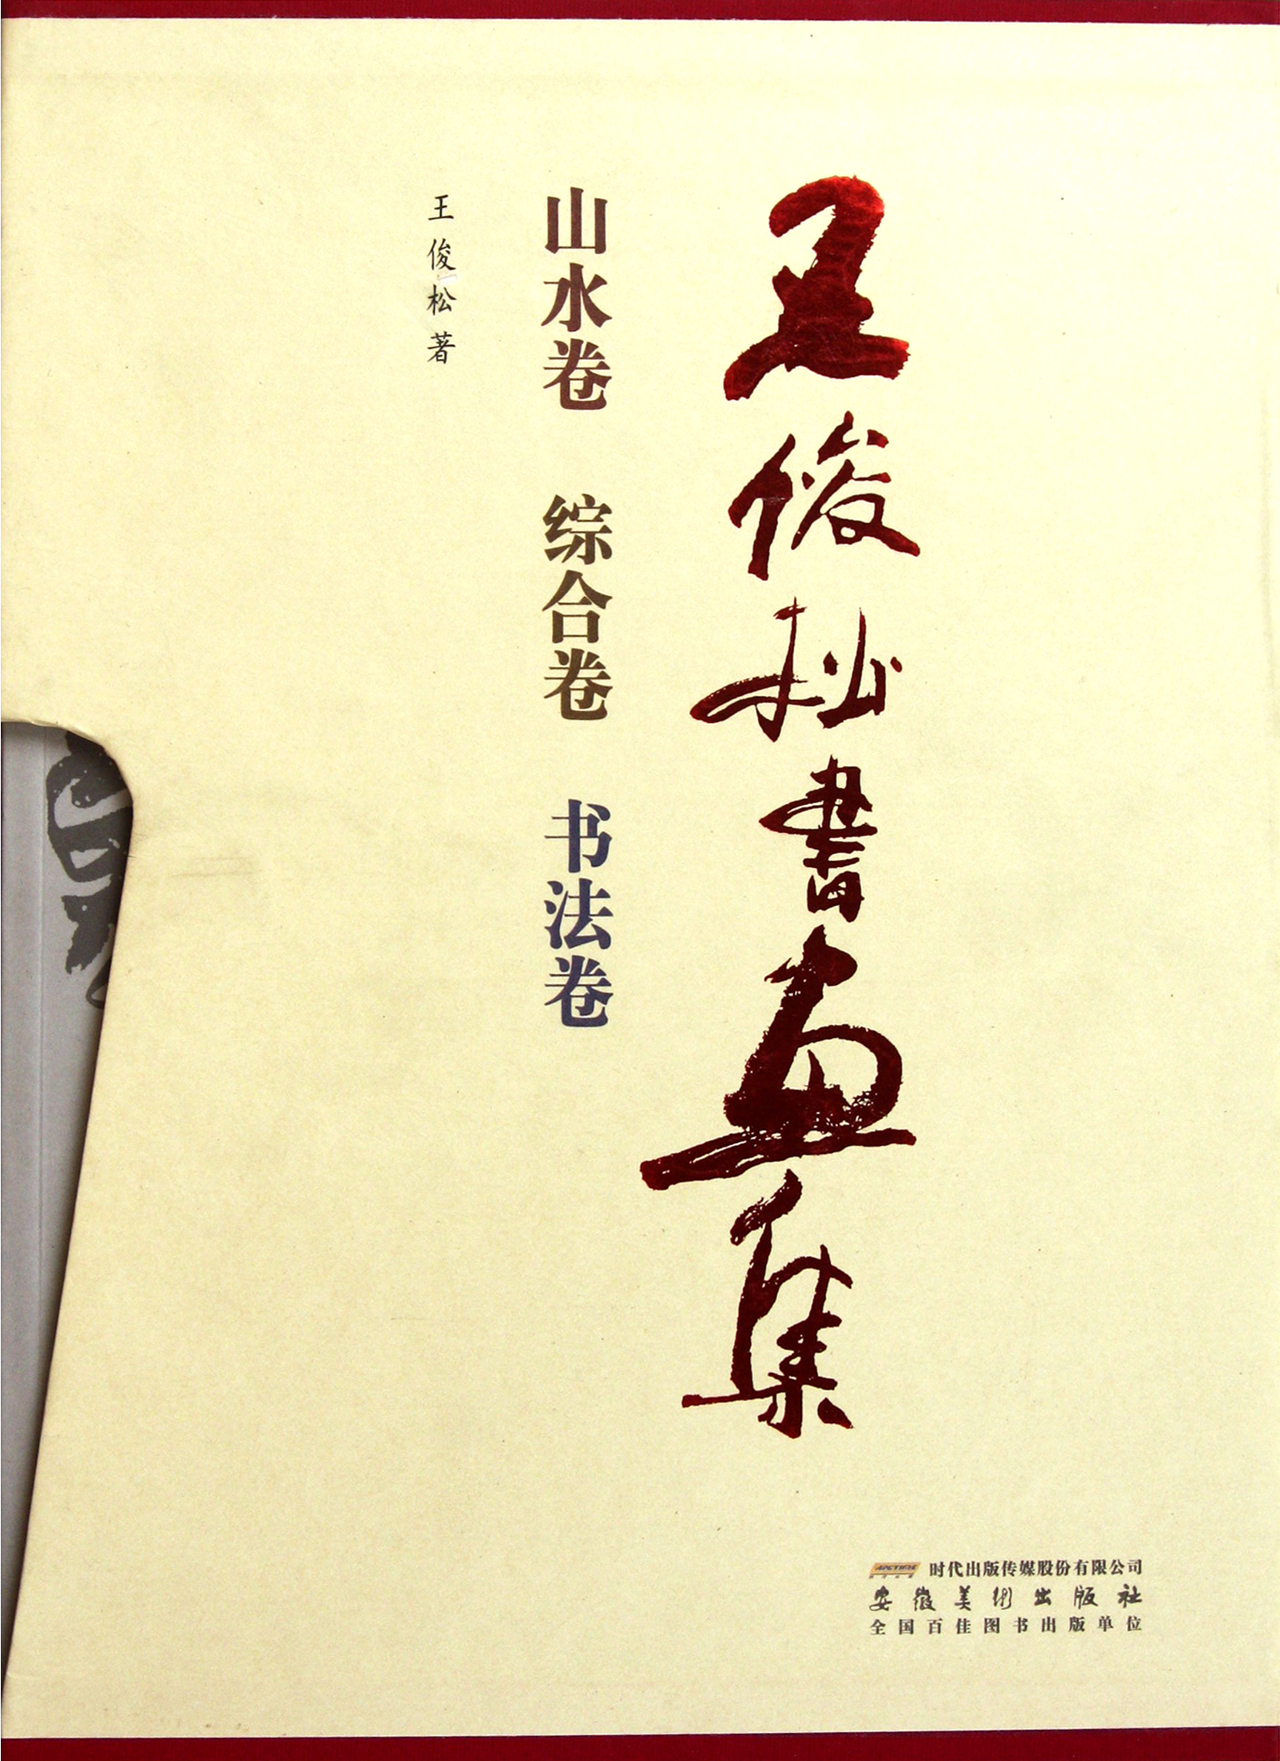 王俊松書画集
山水卷 综合卷 书法卷
王俊松著
时代出版传媒股份有限公司
安徽美術出版社
全国百佳图书出版单位